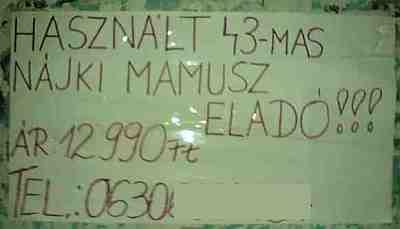 HASZNÁLT 43-MAS
NÁJKI MAMUSZ
ELADÓ!!!
ÁR 12990 Ft
TEL.: 0630